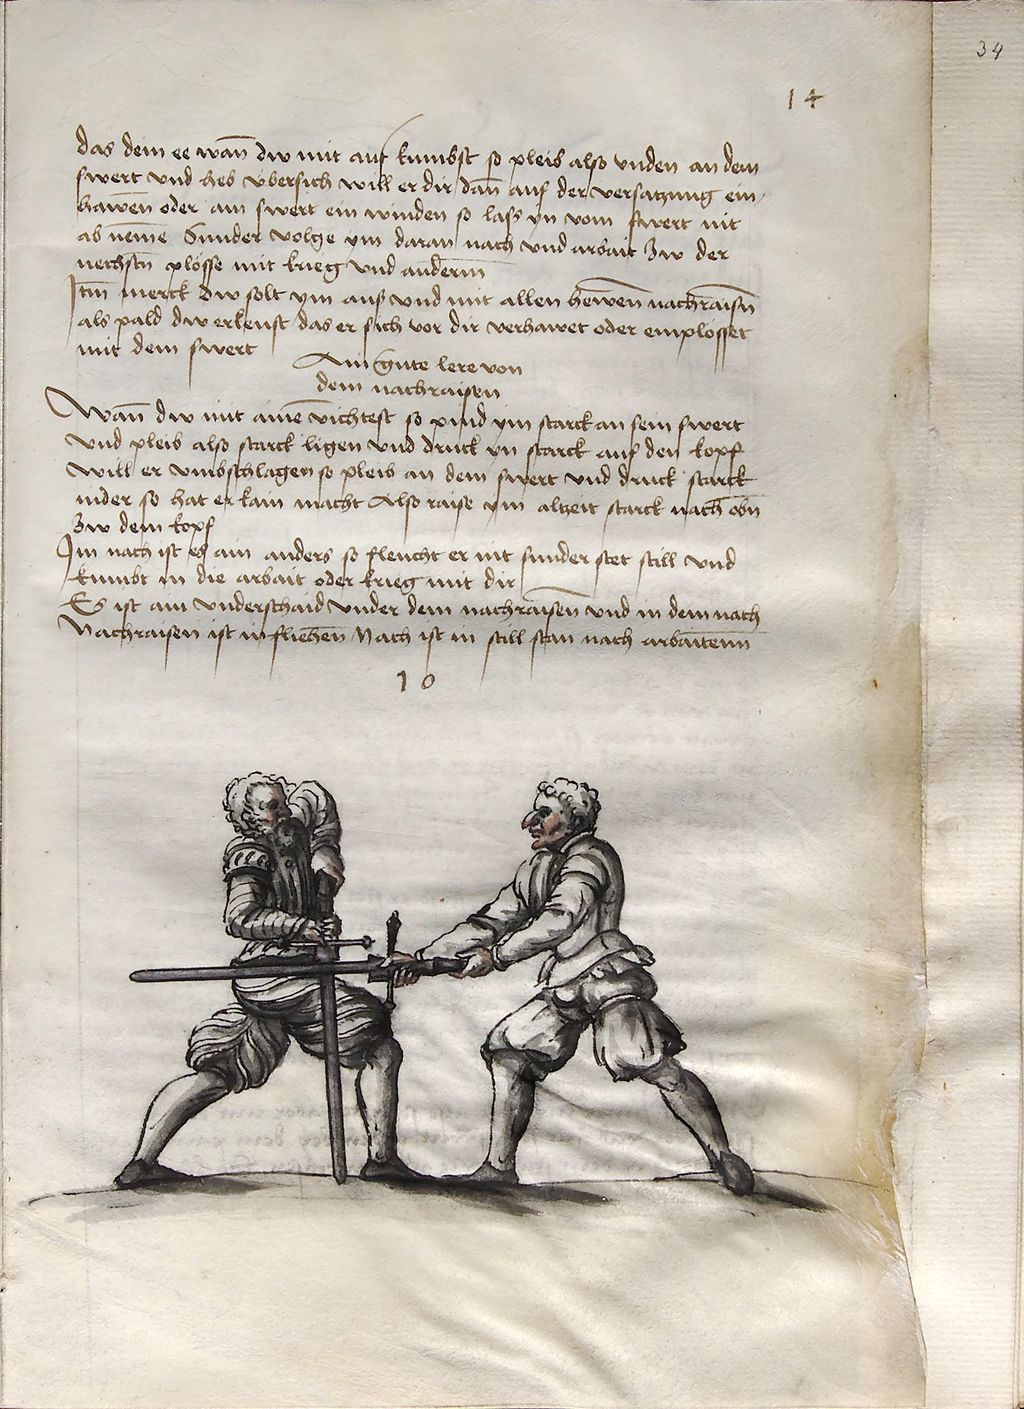 34
14
das dem ee wan̄ dw mit auf kumbst so pleib also vnden an dem
swert vnd heb vbersich will er dir dan̄ auf der versatzung ein
hawen̄ oder am swert ein winden so lass yn vom swert nit
ab neme͞ Sunder volge ym daran nach vnd arbait zw der
nechstn̄ plösse mit krieg vnd anderm̄
Itm̄ merck dw solt ym auss vnd mit allen hewen̄ nachraisn̄
als pald dw erkenst das er sich vor dir verhawet oder emplösset
mit dem swert
Ain gute lere von
dem nachraisen
Wan̄ dw mit aine͞ vichtest so pind ym starck an sein swert
vnd pleib also starck ligen vnd druck yn starck auf den kopf
will er vmbschlagen so pleib an dem swert vnd druck starck
nider so hat er kain macht Also raise ym altzeit starck nach obn̄
zw dem kopf
Im nach ist es ain anders so fleucht er nit sunder stet still vnd
kumbt in die arbait oder krieg mit dir
Es ist ain vnderschaid vnder dem nachraisen̄ vnd in dem nach
Nachraisen ist in fliehen̄ Nach ist in still stan̄ nach arbaitenn
10